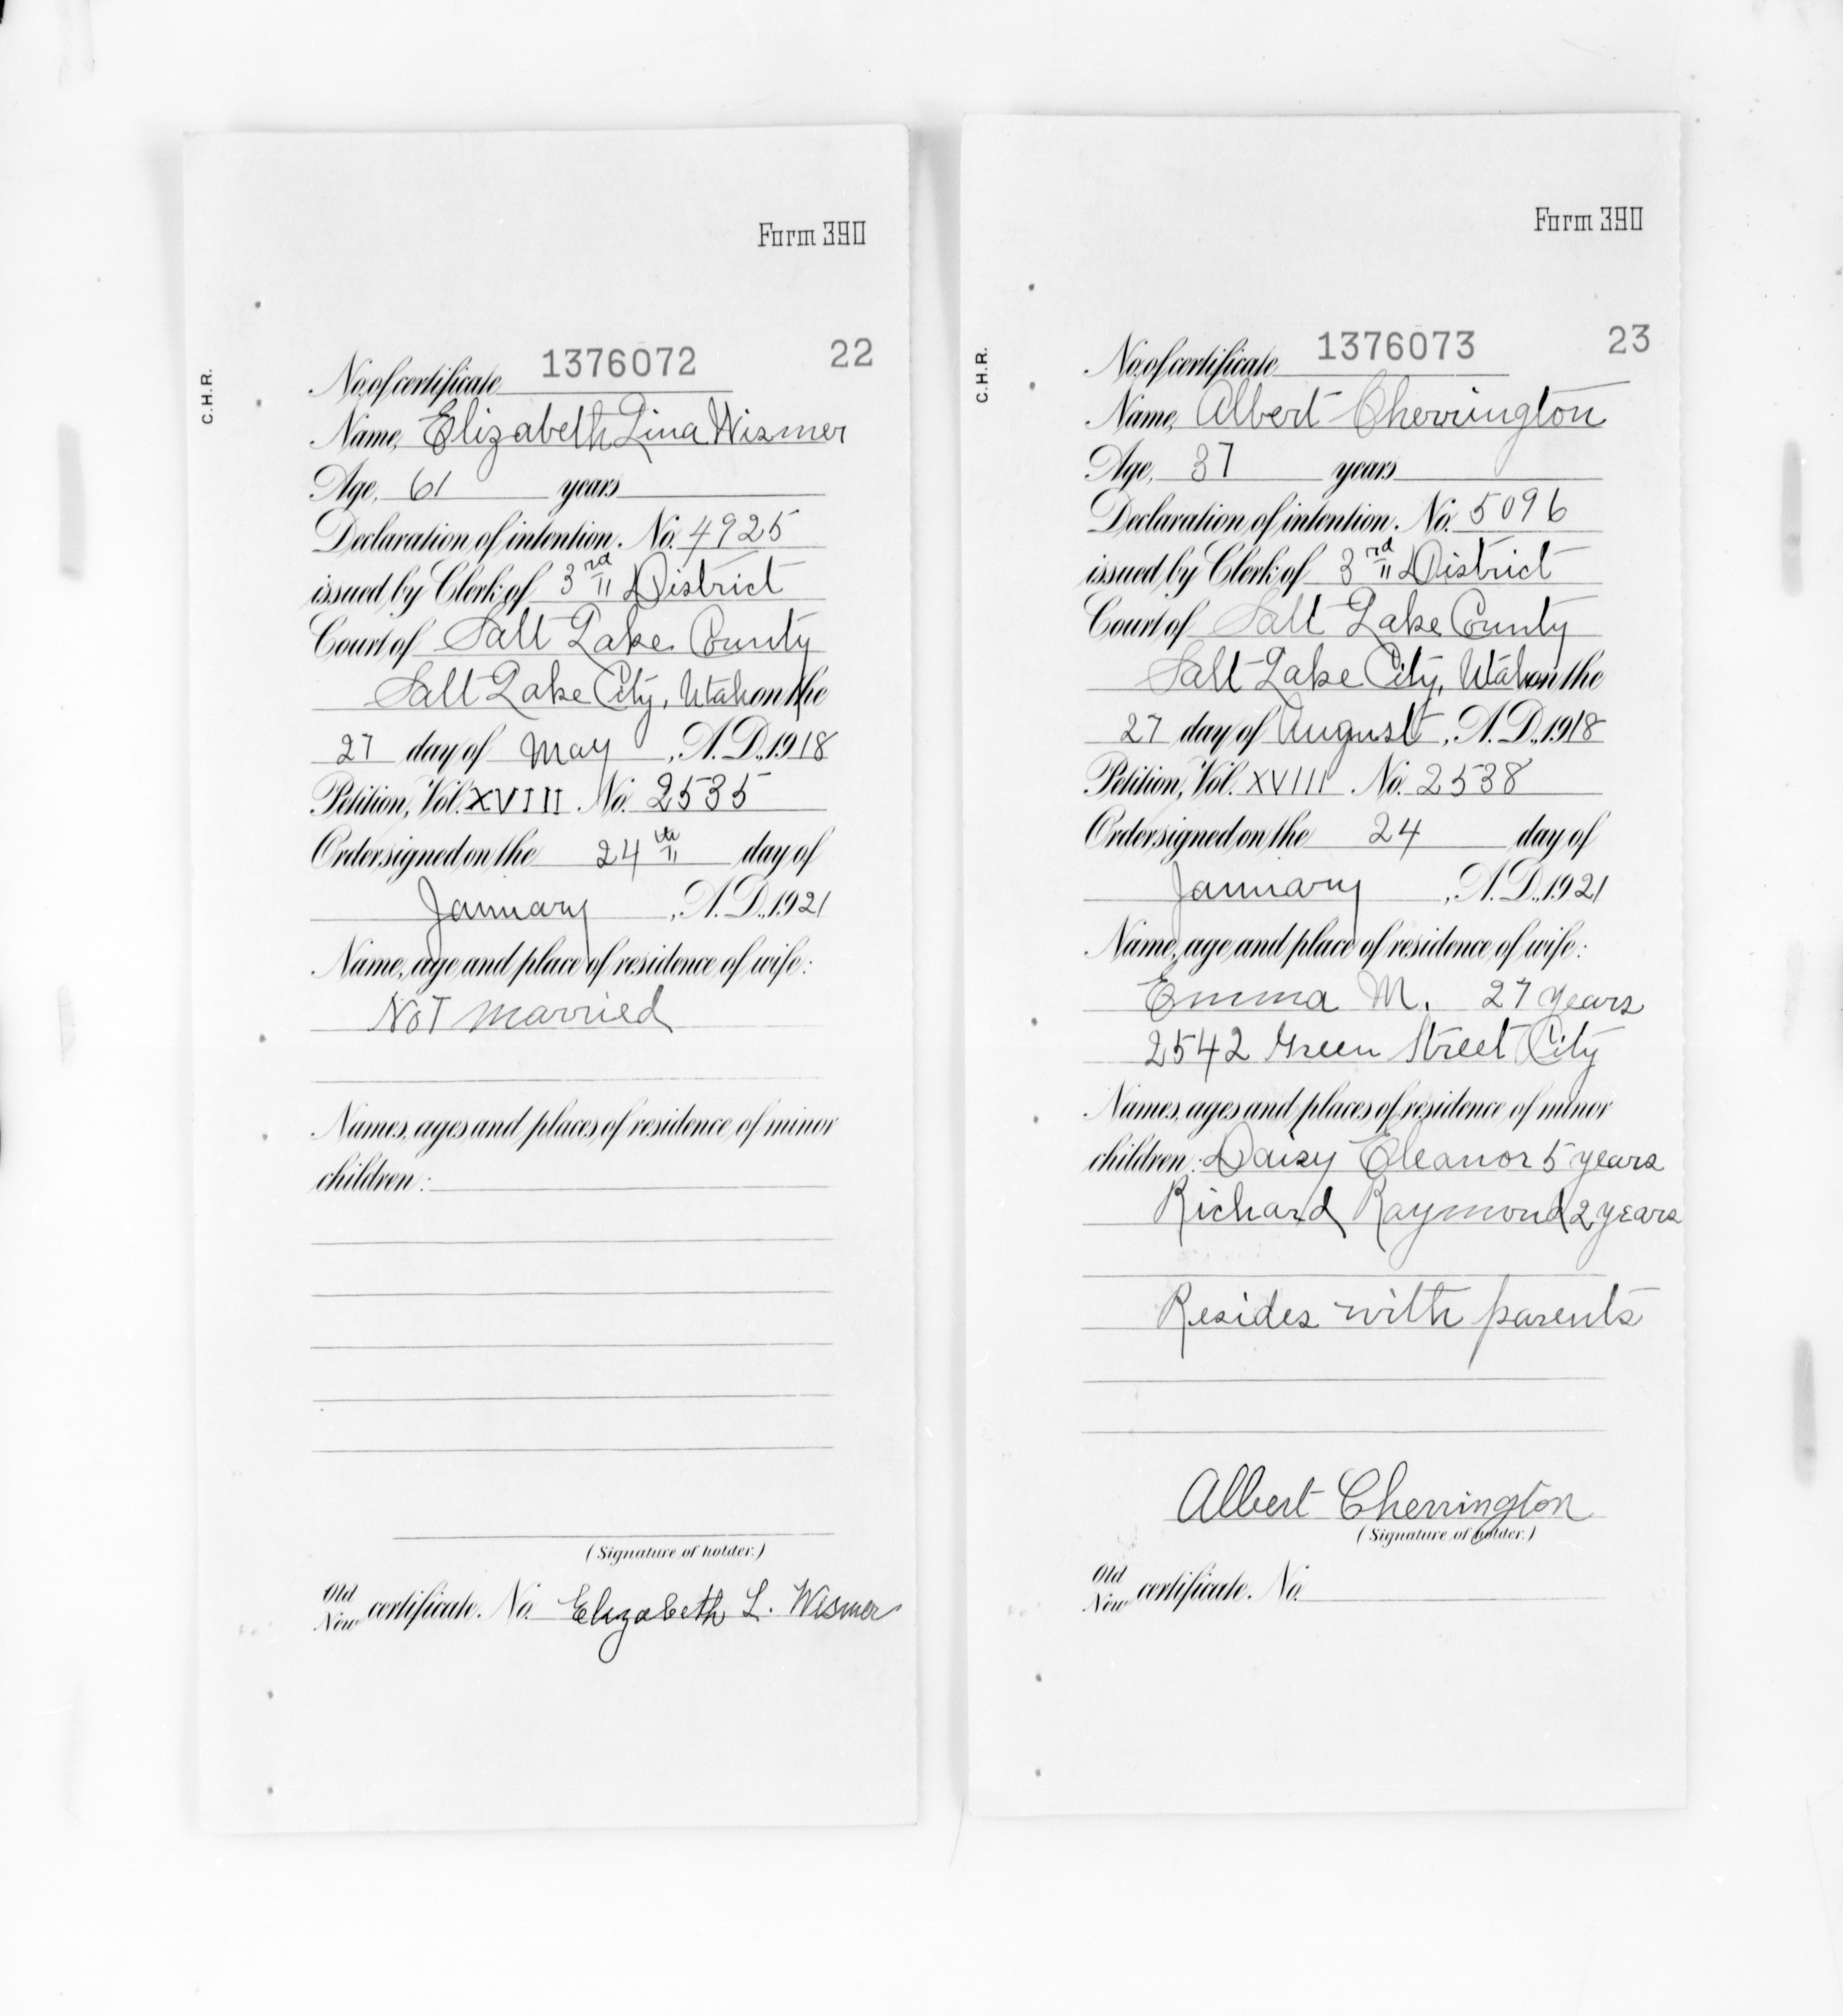 Form 390
C.H.R.
No. of certificate 1376072 22
Name, Elizabeth Lina Wismer
Age, 61 years
Declaration of intention. No. 4925
issued by Clerk of 3rd District
Court of Salt Lake County
Salt Lake City, Utah on the
27 day of May, A.D., 1918
Petition, Vol. XVIII No. 2535
Order signed on the 24th day of
January, A.D., 1921
Name, age and place of residence of wife:
Not married
Names, ages and places of residence of minor
children:
(Signature of holder.)
Old
New certificate. No. Elizabeth L. Wismer
Form 390
C.H.R.
No. of certificate 1376073 23
Name, Albert Cherrington
Age, 37 years
Declaration of intention. No. 5096
issued by Clerk of 3rd District
Court of Salt Lake County
Salt Lake City, Utah on the
27 day of August, A.D., 1918
Petition, Vol. XVIII No. 2538
Order signed on the 24 day of
January, A.D., 1921
Name, age and place of residence of wife:
Emma M. 27 years
2542 Green Street City
Names, ages and places of residence of minor
children: Daisy Eleanor 5 years
Richard Raymond 2 years
Resides with parents
Albert Cherrington
(Signature of holder.)
Old
New certificate. No.